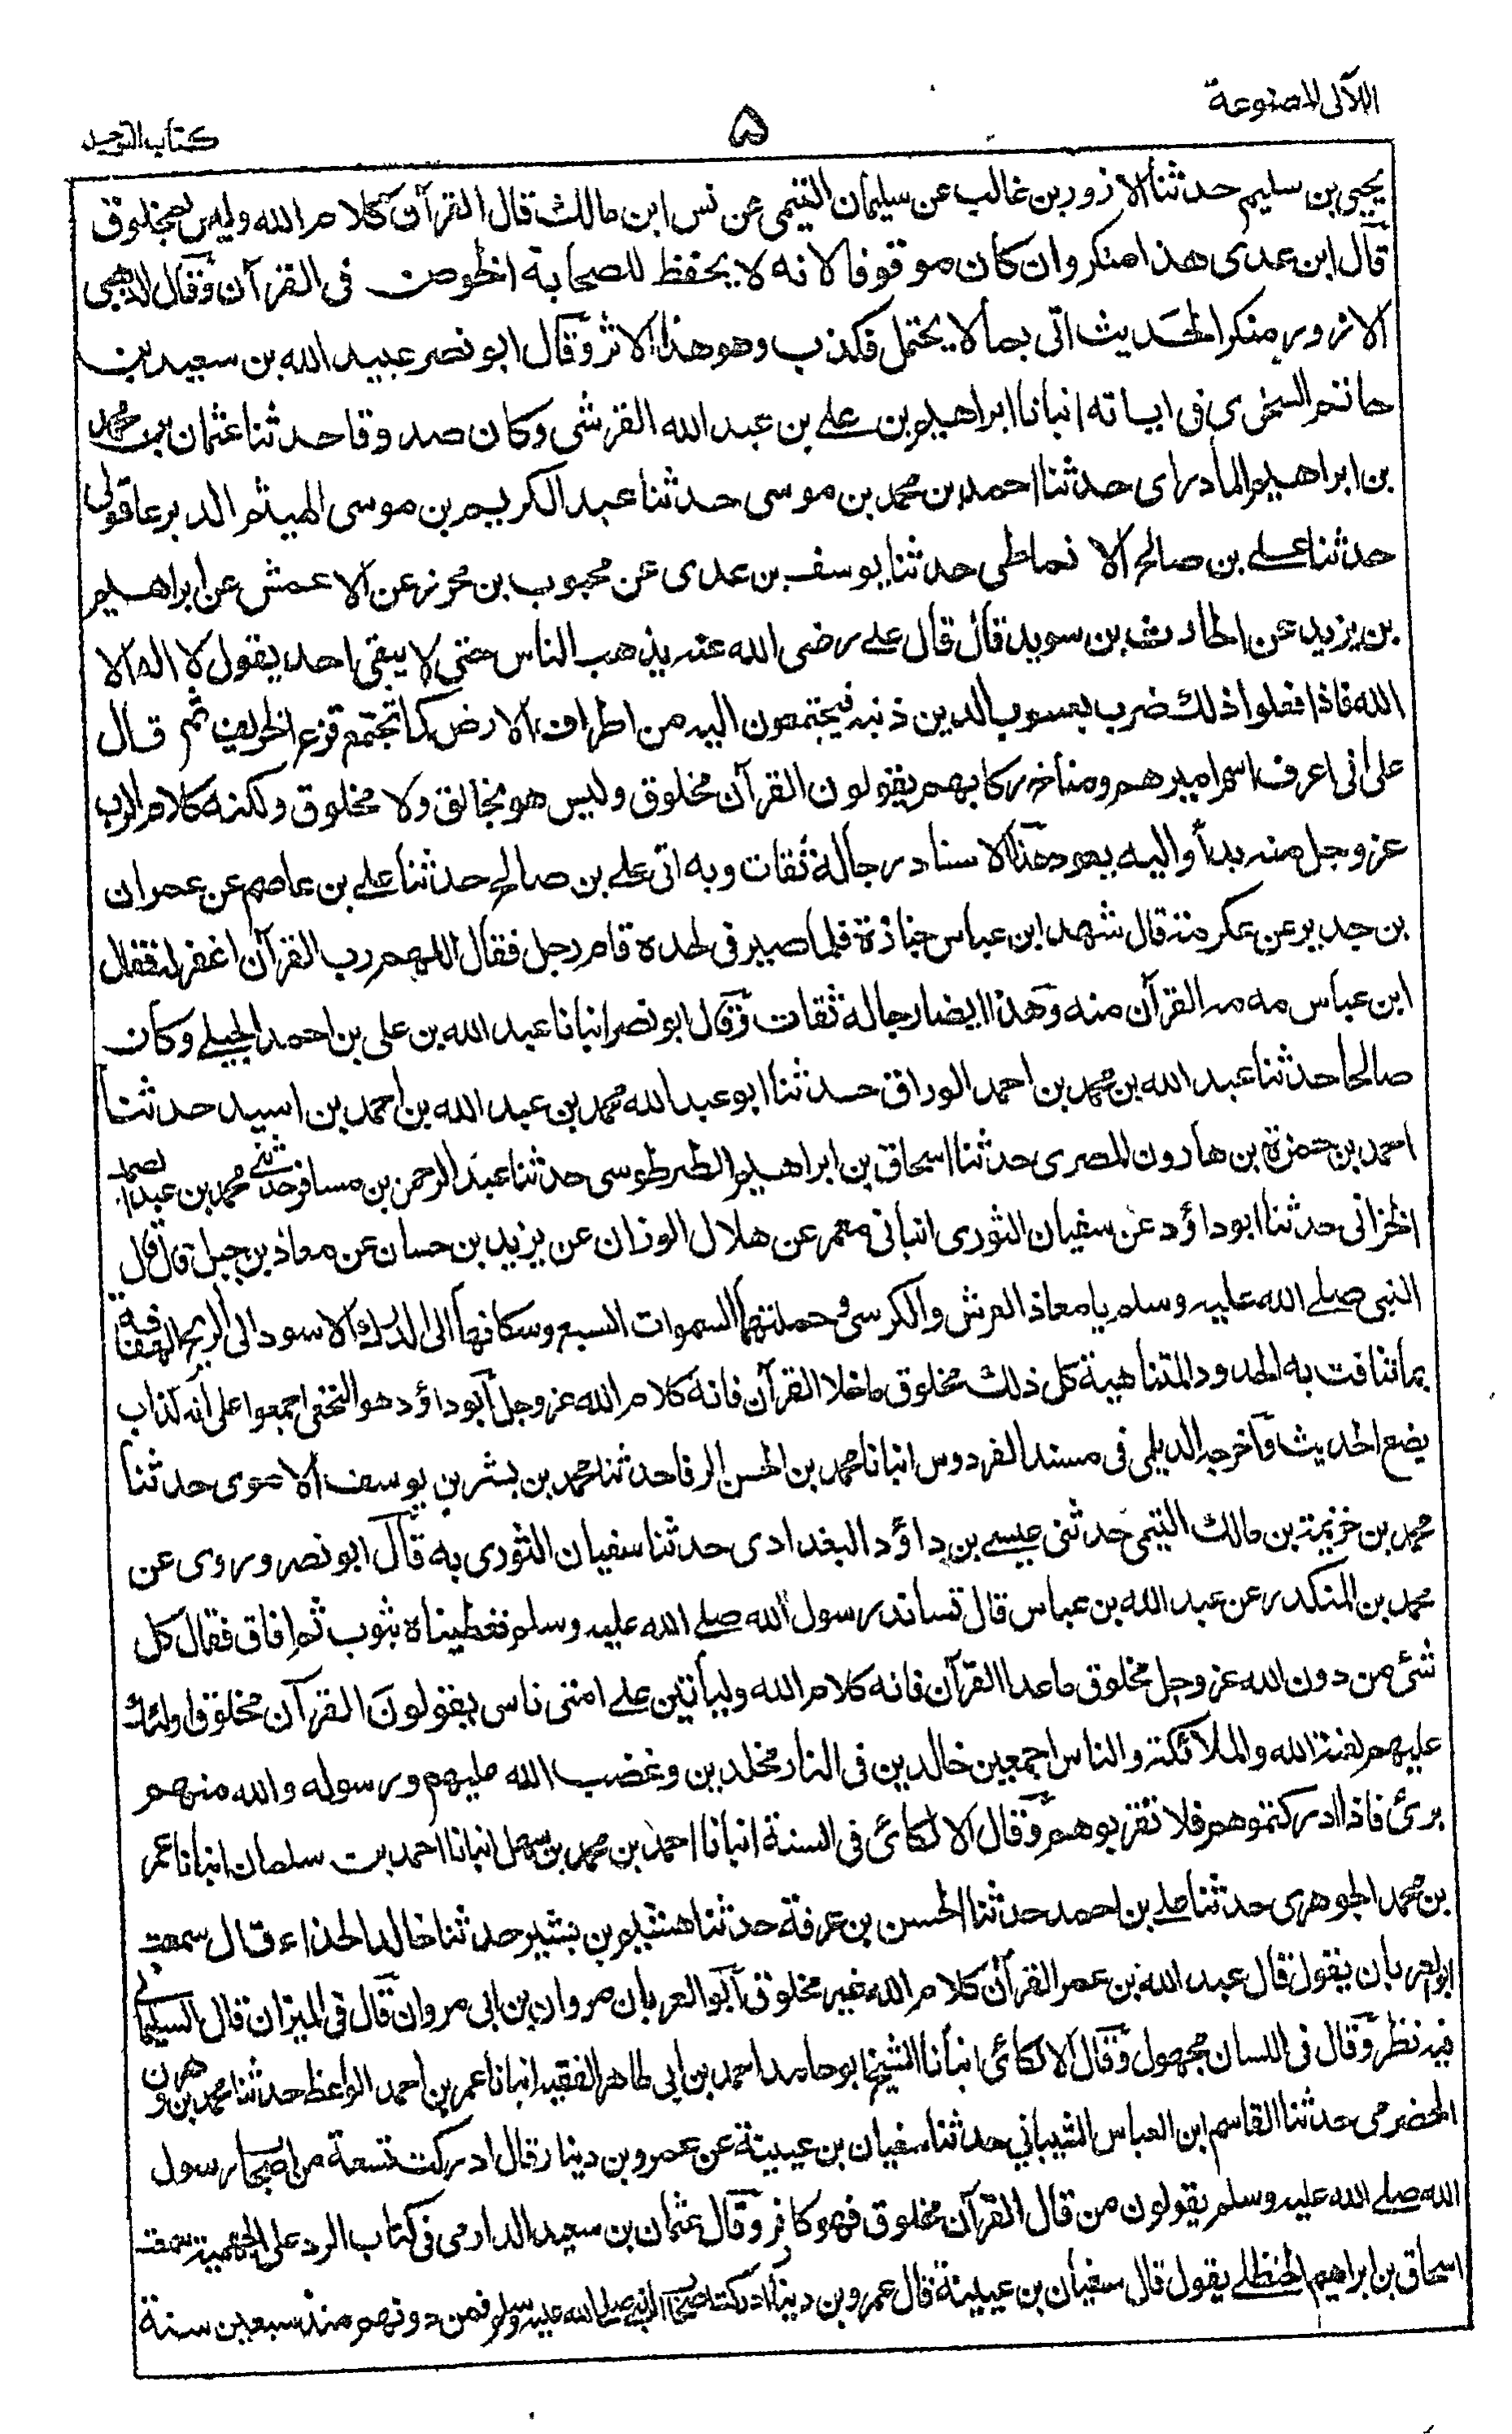 اللآلى المصنوعة
۵
كتاب التوحيد
يحيى بن سليم حدثنا الازور بن غالب عن سليمان التيمى عن نس ابن مالك قال القرآن كلام الله وليس بمخلوق
قال ابن عدى هذا منكر وان كان موقوفا لانه لا يحفظ للصحابة الخوض فى القرآن وقال الذهبى
الازور منكر الحديث اتى بما لا يحتمل فكذب وهو هذا الاثر وقال ابو نصر عبيد الله بن سعيد بن
حاتم السجزى فى ابانته انبانا ابراهيم بن على بن عبد الله القرشى وكان صدوقا حدثنا عثمان بن محمد
بن ابراهيم المادراى حدثنا احمد بن محمد بن موسى حدثنا عبد الكريم بن موسى الهيثم الديرعاقولى
حدثنا على بن صالح الانماطى حدثنا يوسف بن عدى عن محبوب بن محرز عن الاعمش عن ابراهيم
بن يزيد عن الحارث بن سويد قال قال على رضى الله عنه يذهب الناس حتى لا يبقى احد يقول لا اله الا
الله فاذا فعلوا ذلك ضرب يعسوب الدين ذنبه فيجتمعون اليه من اطراف الارض كما تجتمع قزع الخريف ثم قال
على انى اعرف اسم اميرهم ومناخ ركابهم يقولون القرآن مخلوق وليس هو بخالق ولا مخلوق ولكنه كلام الرب
عز وجل منه بدأ واليه يعود هذا الاسناد رجاله ثقات وبه اتى على بن صالح حدثنا على بن عاصم عن عمران
بن حدير عن عكرمة قال شهد ابن عباس جنازة فلما صير فى لحده قام رجل فقال اللهم رب القرآن اغفر له فقال
ابن عباس مه مه القرآن منه وهذا ايضا رجاله ثقات وقال ابو نصر انبانا عبد الله بن على بن احمد الجبلى وكان
صالحا حدثنا عبد الله بن محمد بن احمد الوراق حدثنا ابو عبد الله محمد بن عبد الله بن احمد بن اسيد حدثنا
احمد بن حمزة بن هارون المصرى حدثنا اسحاق بن ابراهيم الطرطوسى حدثنا عبد الرحمن بن مسافر حدثنى محمد بن عبد الصمد
الخزانى حدثنا ابو داؤد عن سفيان الثورى انبانى معمر عن هلال الوزان عن يزيد بن حسان عن معاذ بن جبل قال قال
النبى صلے الله عليه وسلم يا معاذ العرش والكرسى وحملتهما السموات السبع وسكانها الى الدرك الاسود الى الريح الهفافة
بما تنافت به الحدود المتناهية كل ذلك مخلوق ما خلا القرآن فانه كلام الله عز وجل ابو داؤد هو النخعى اجمعوا على انه كذاب
يضع الحديث واخرجه الديلمى فى مسند الفردوس انبانا حمد بن الحسن الرفا حدثنا حمد بن بشر بن يوسف الاموى حدثنا
محمد بن خزيمة بن مالك التيمى حدثنى عيسے بن داؤد البغدادى حدثنا سفيان الثورى به قال ابو نصر وروى عن
محمد بن المنكدر عن عبد الله بن عباس قال تساند رسول الله صلے الله عليه وسلم فغطيناه بثوب ثم افاق فقال كل
شئ من دون الله عز وجل مخلوق ما عدا القرآن فانه كلام الله وليأتين علے امتى ناس يقولون القرآن مخلوق اولئك
عليهم لعنة الله والملائكة والناس اجمعين خالدين فى النار مخلدين وغضب الله عليهم ورسوله والله منهم
برئ فاذا ادركتموهم فلا تقربوهم وقال الالكائى فى السنة انبانا احمد بن محمد بن سهل انبانا احمد بن سلمان انبانا عمر
بن محمد الجوهرى حدثنا على بن احمد حدثنا الحسن بن عرفة حدثنا هشيم بن بشير حدثنا خالد الحذاء قال سمعت
ابو العريان يقول قال عبد الله بن عمر القرآن كلام الله غير مخلوق ابو العريان مروان بن ابى مروان قال فى الميزان قال السليمانى
فيه نظر وقال فى اللسان مجهول وقال الالكائى انبأنا الشيخ ابو حامد احمد بن ابى طاهر الفقيه انبانا عمر بن احمد الواعظ حدثنا محمد بن هرون
الحضرمى حدثنا القاسم ابن العباس الشيبانى حدثنا سفيان بن عيينة عن عمرو بن دينار قال ادركت تسعة من اصحاب رسول
الله صلے الله عليه وسلم يقولون من قال القرآن مخلوق فهو كافر وقال عثمان بن سعيد الدارمى فى كتاب الرد على الجهمية سمعت
اسحاق بن ابراهيم الحنظلے يقول قال سفيان بن عيينة قال عمرو بن دينار ادركت اصحاب النبى صلى الله عليه وسلم فمن دونهم منذ سبعين سنة